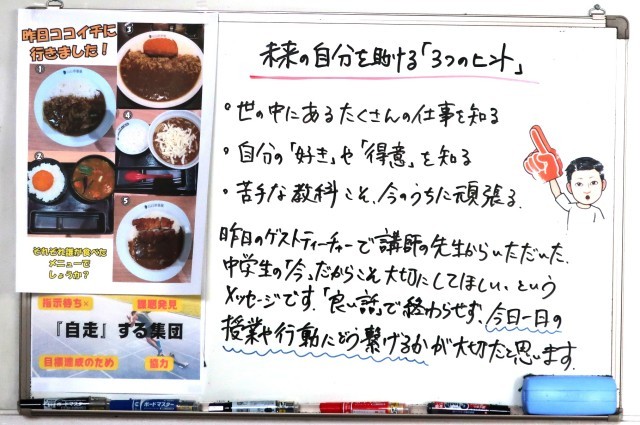 昨日ココイチに
行きました！
1
2
3
4
5
それぞれ誰が食べた
メニューで
しょうか？
指示待ち×
課題発見
『自走』する集団
目標達成のため
協力
未来の自分を助ける「3つのヒント」
・世の中にあるたくさんの仕事を知る
・自分の「好き」や「得意」を知る
・苦手な教科こそ、今のうちに頑張る。
昨日のゲストティーチャーで講師の先生からいただいた、
中学生の「今」だからこそ大切にしてほしい、という
メッセージです。「良い話」で終わらせず、今日一日の
授業や行動にどう繋げるかが大切だと思います。
ボードマスター